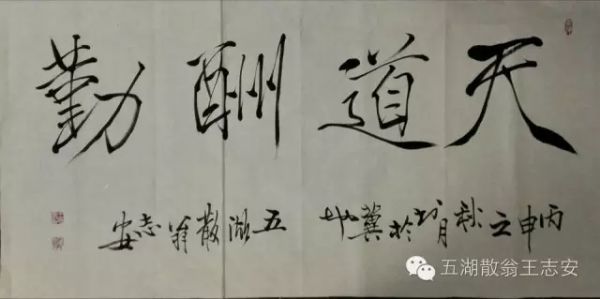 天道酬勤
丙申之秋月於冀 五湖散翁志安
五湖散翁王志安